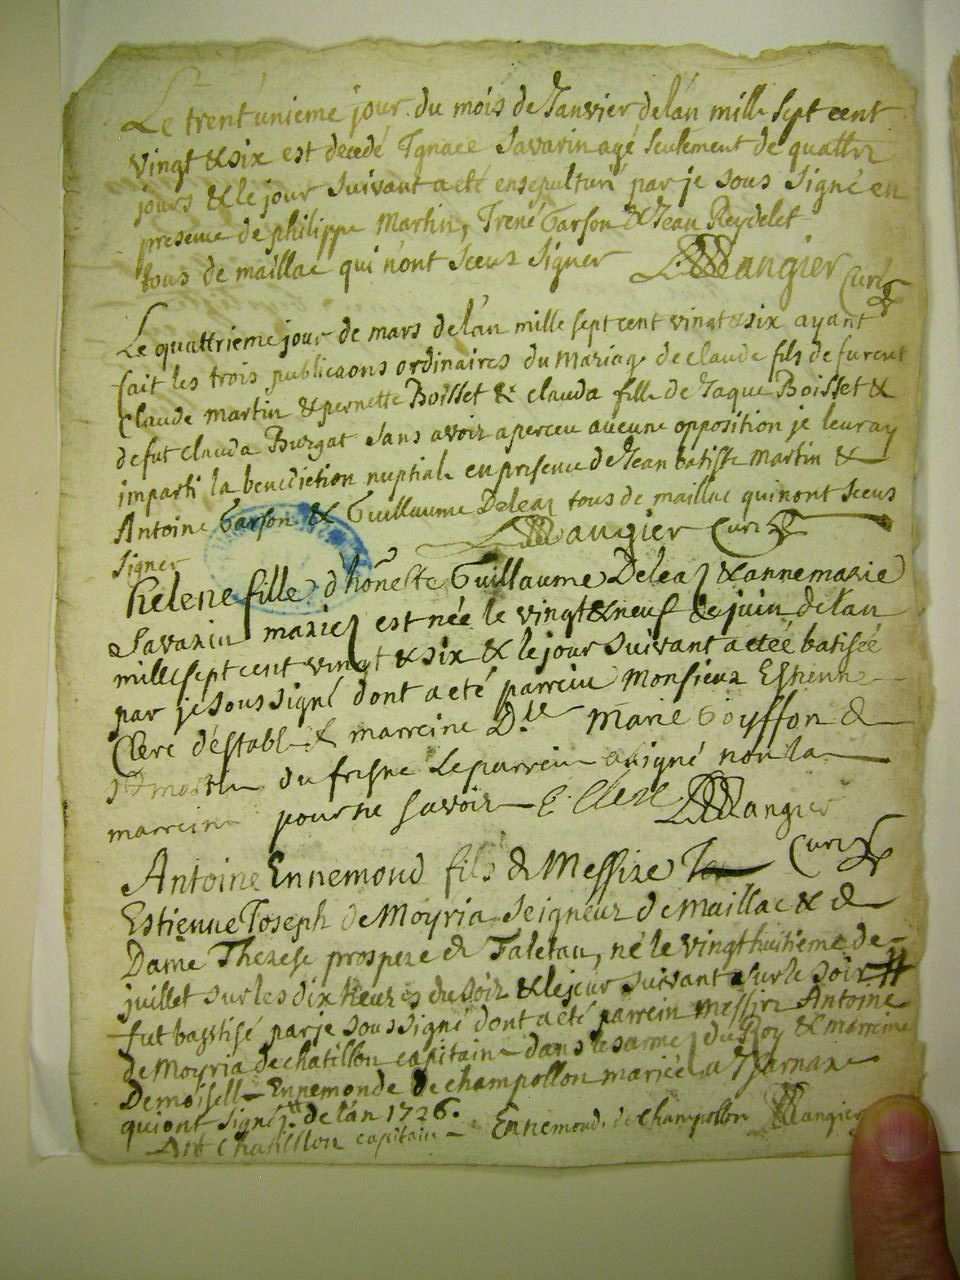 Le trent'unieme jour du mois de Janvier de lán mille sept cent
vingt & six est decedé Ignace Savarin agé seulement de quattre
jours & le jour suivant a eté ensepulturé par je sous signé en
presence de philippe Martin, Irené Garson & Jean Reydelet
tous de maillac qui n'ont sceus signer Mangier Curé
Le quattrieme jour de mars de lán mille sept cent vingt & six ayant
fait les trois publicaons ordinaires du Mariage de claude fils de furent
Claude martin & pernette Boisset & clauda fille de Jaque Boisset &
defut clauda Burgat sans avoir aperceu aucune opposition je leur ay
imparti la benediction nuptiale en presence de Jean batiste Martin &
Antoine Garson & Guillaume Deleaz tous de maillac qui nont sceus
signer Mangier Curé
helene fille d'hoñeste Guillaume Deleaz & anne marie
Savarin mariez est née le vingt & neuf de juin de lan
mille sept cent vingt & six & le jour suivant a etée batisée
par je sous signé dont a eté parrein Monsieur Estienne
Clerc d'éstable & marreine D.lle Marie Goyffon de
du fresne Le parrein a signé non la
marreine pour ne savoir E. Clerc Mangier
Curé
Antoine Ennemond fils de Messire
Estienne Joseph de Moyria Seigneur de Maillac & de
Dame Therese prospere de Faletan, né le vingt huitieme de
juillet sur les dix heures du soir & le jour suivant sur le soir #
fut baptisé par je sous signé dont a eté parrein Messire Antoine
de Moyria de chatillon capitaine dans les armes du Roy & marreine
Demoiselle Ennemonde de champollon mariée a
qui ont signé # de lán 1726.
Ant Chatillon capitain Ennemonde de Champollon Mangier